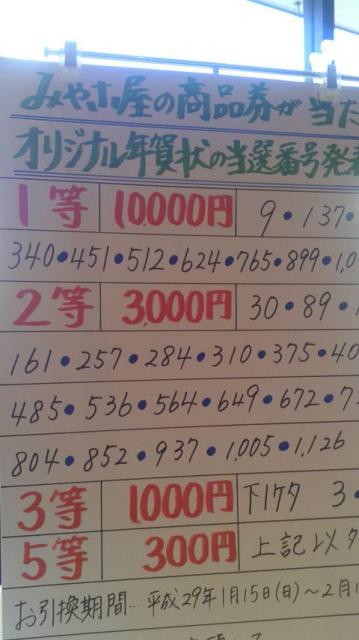 みやこ屋の商品券が当た
オリジナル年賀状の当選番号発表
1等 10,000円 9・137・
340・451・512・624・765・899・1,0
2等 3,000円 30・89・1
161・257・284・310・375・40
485・536・564・649・672・7
804・852・937・1,005・1,126
3等 1000円 下1ケタ 3・
5等 300円 上記以外
お引換期間…平成29年1月15日(日)~2月1